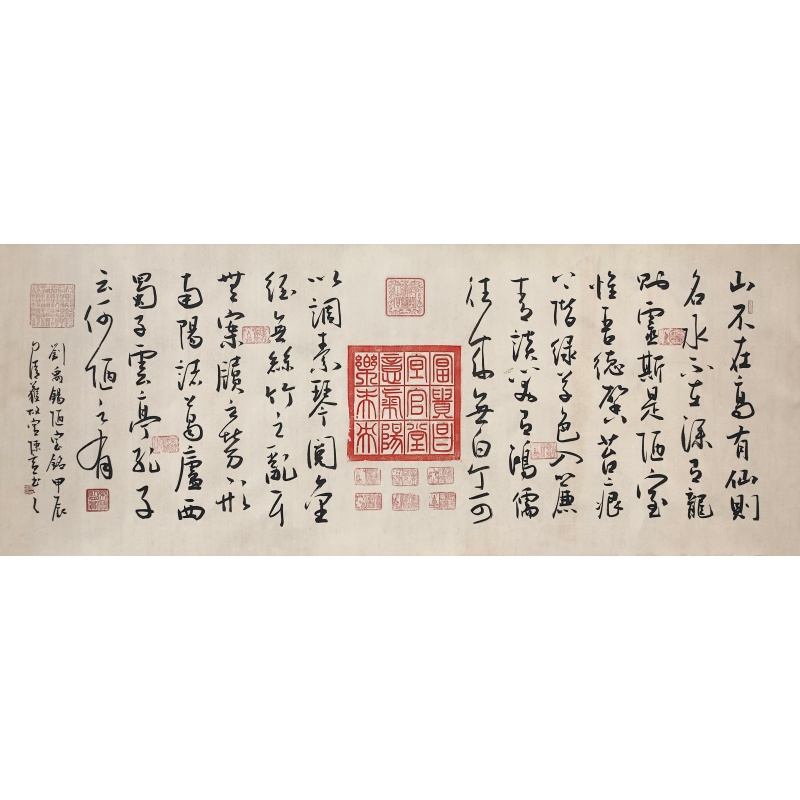 山不在高有仙則
名水不在深有龍
則靈斯是陋室
惟吾德馨苔痕
上階綠草色入簾
青談笑有鴻儒
往來無白丁可
富貴昌
宜官堂
意氣陽
樂未央
以調素琴閱金
經無絲竹之亂耳
無案牘之勞形
南陽諸葛廬西
蜀子雲亭孔子
云何陋之有
劉禹錫陋室銘甲辰